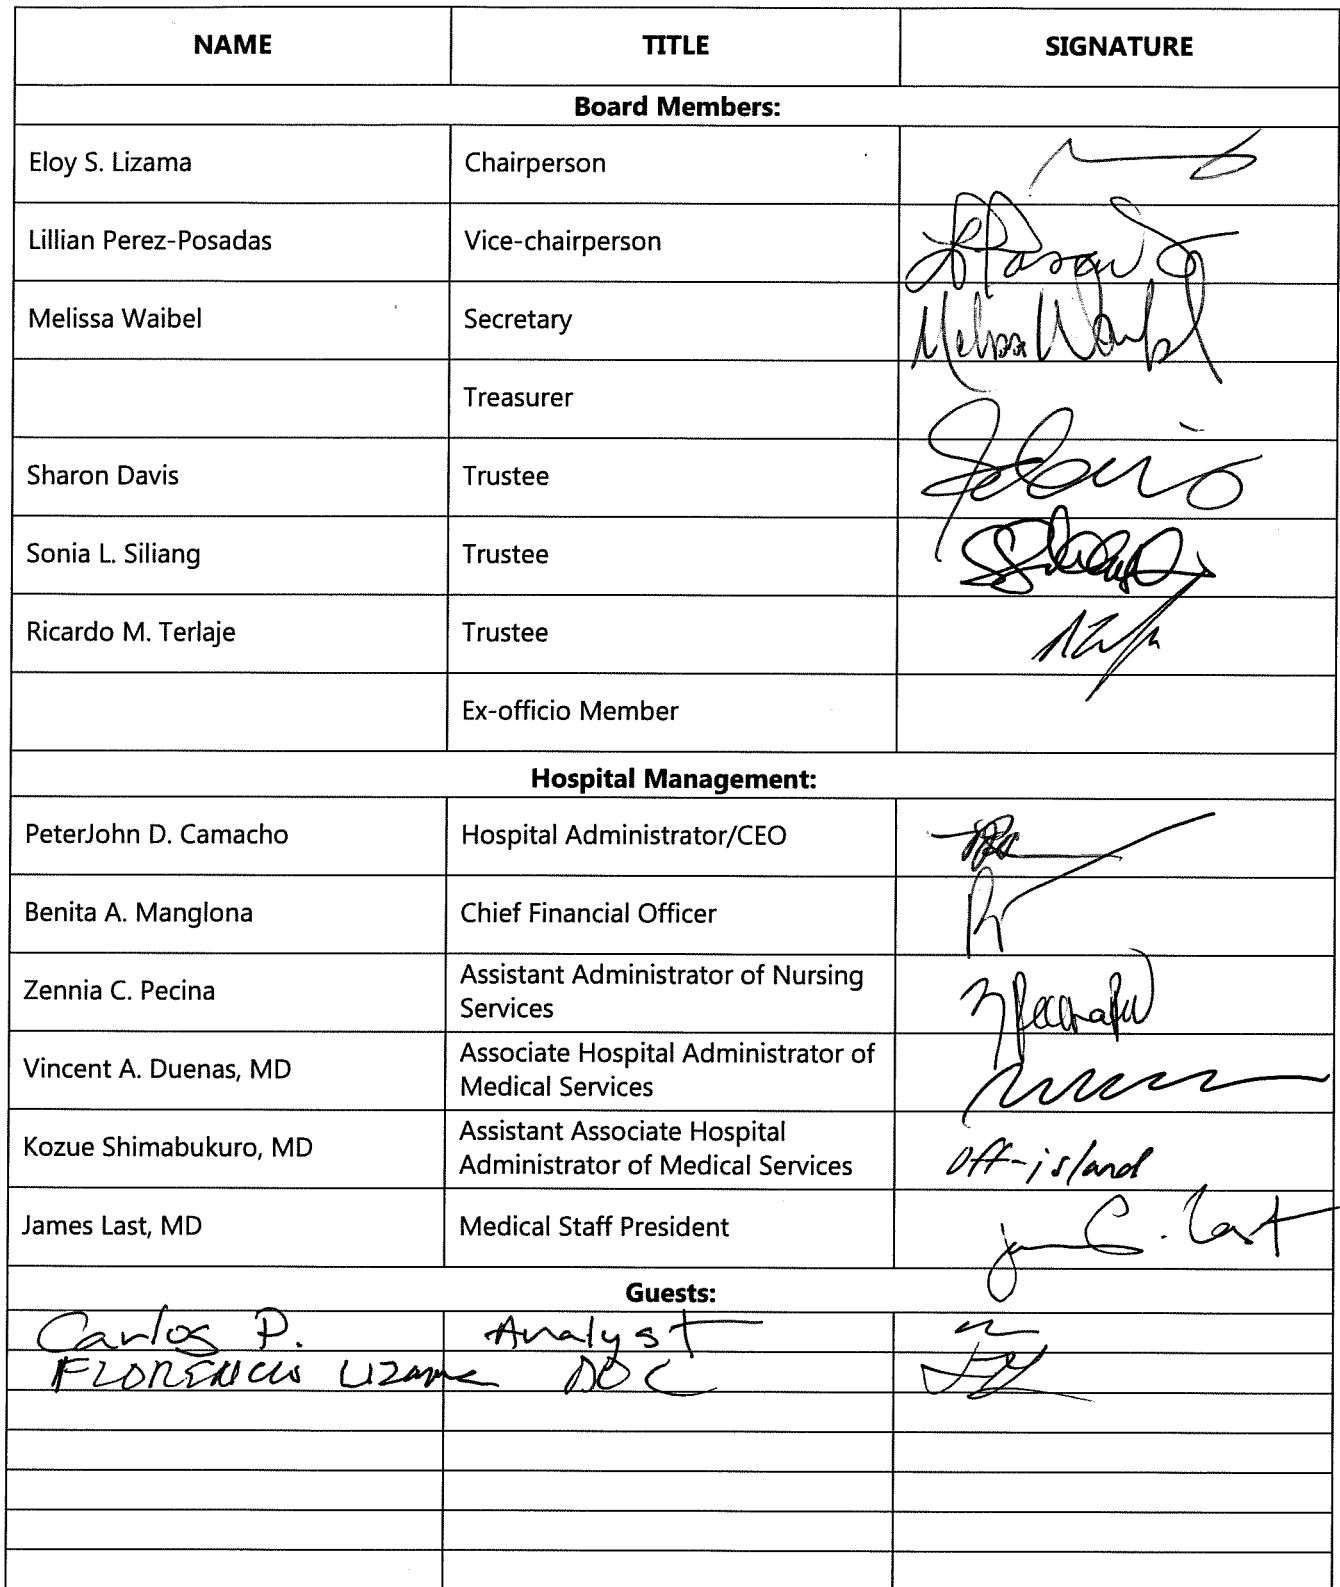 NAME TITLE SIGNATURE
Board Members:
Eloy S. Lizama Chairperson
Lillian Perez-Posadas Vice-chairperson
Melissa Waibel Secretary Melissa Waibel
Treasurer
Sharon Davis Trustee
Sonia L. Siliang Trustee
Ricardo M. Terlaje Trustee
Ex-officio Member
Hospital Management:
PeterJohn D. Camacho Hospital Administrator/CEO
Benita A. Manglona Chief Financial Officer
Zennia C. Pecina Assistant Administrator of Nursing
Services
Vincent A. Duenas, MD Associate Hospital Administrator of
Medical Services
Kozue Shimabukuro, MD Assistant Associate Hospital
Administrator of Medical Services off-island
James Last, MD Medical Staff President C. Last
Guests:
Carlos P. Analyst
FLORENCIO LIZAMA DOC